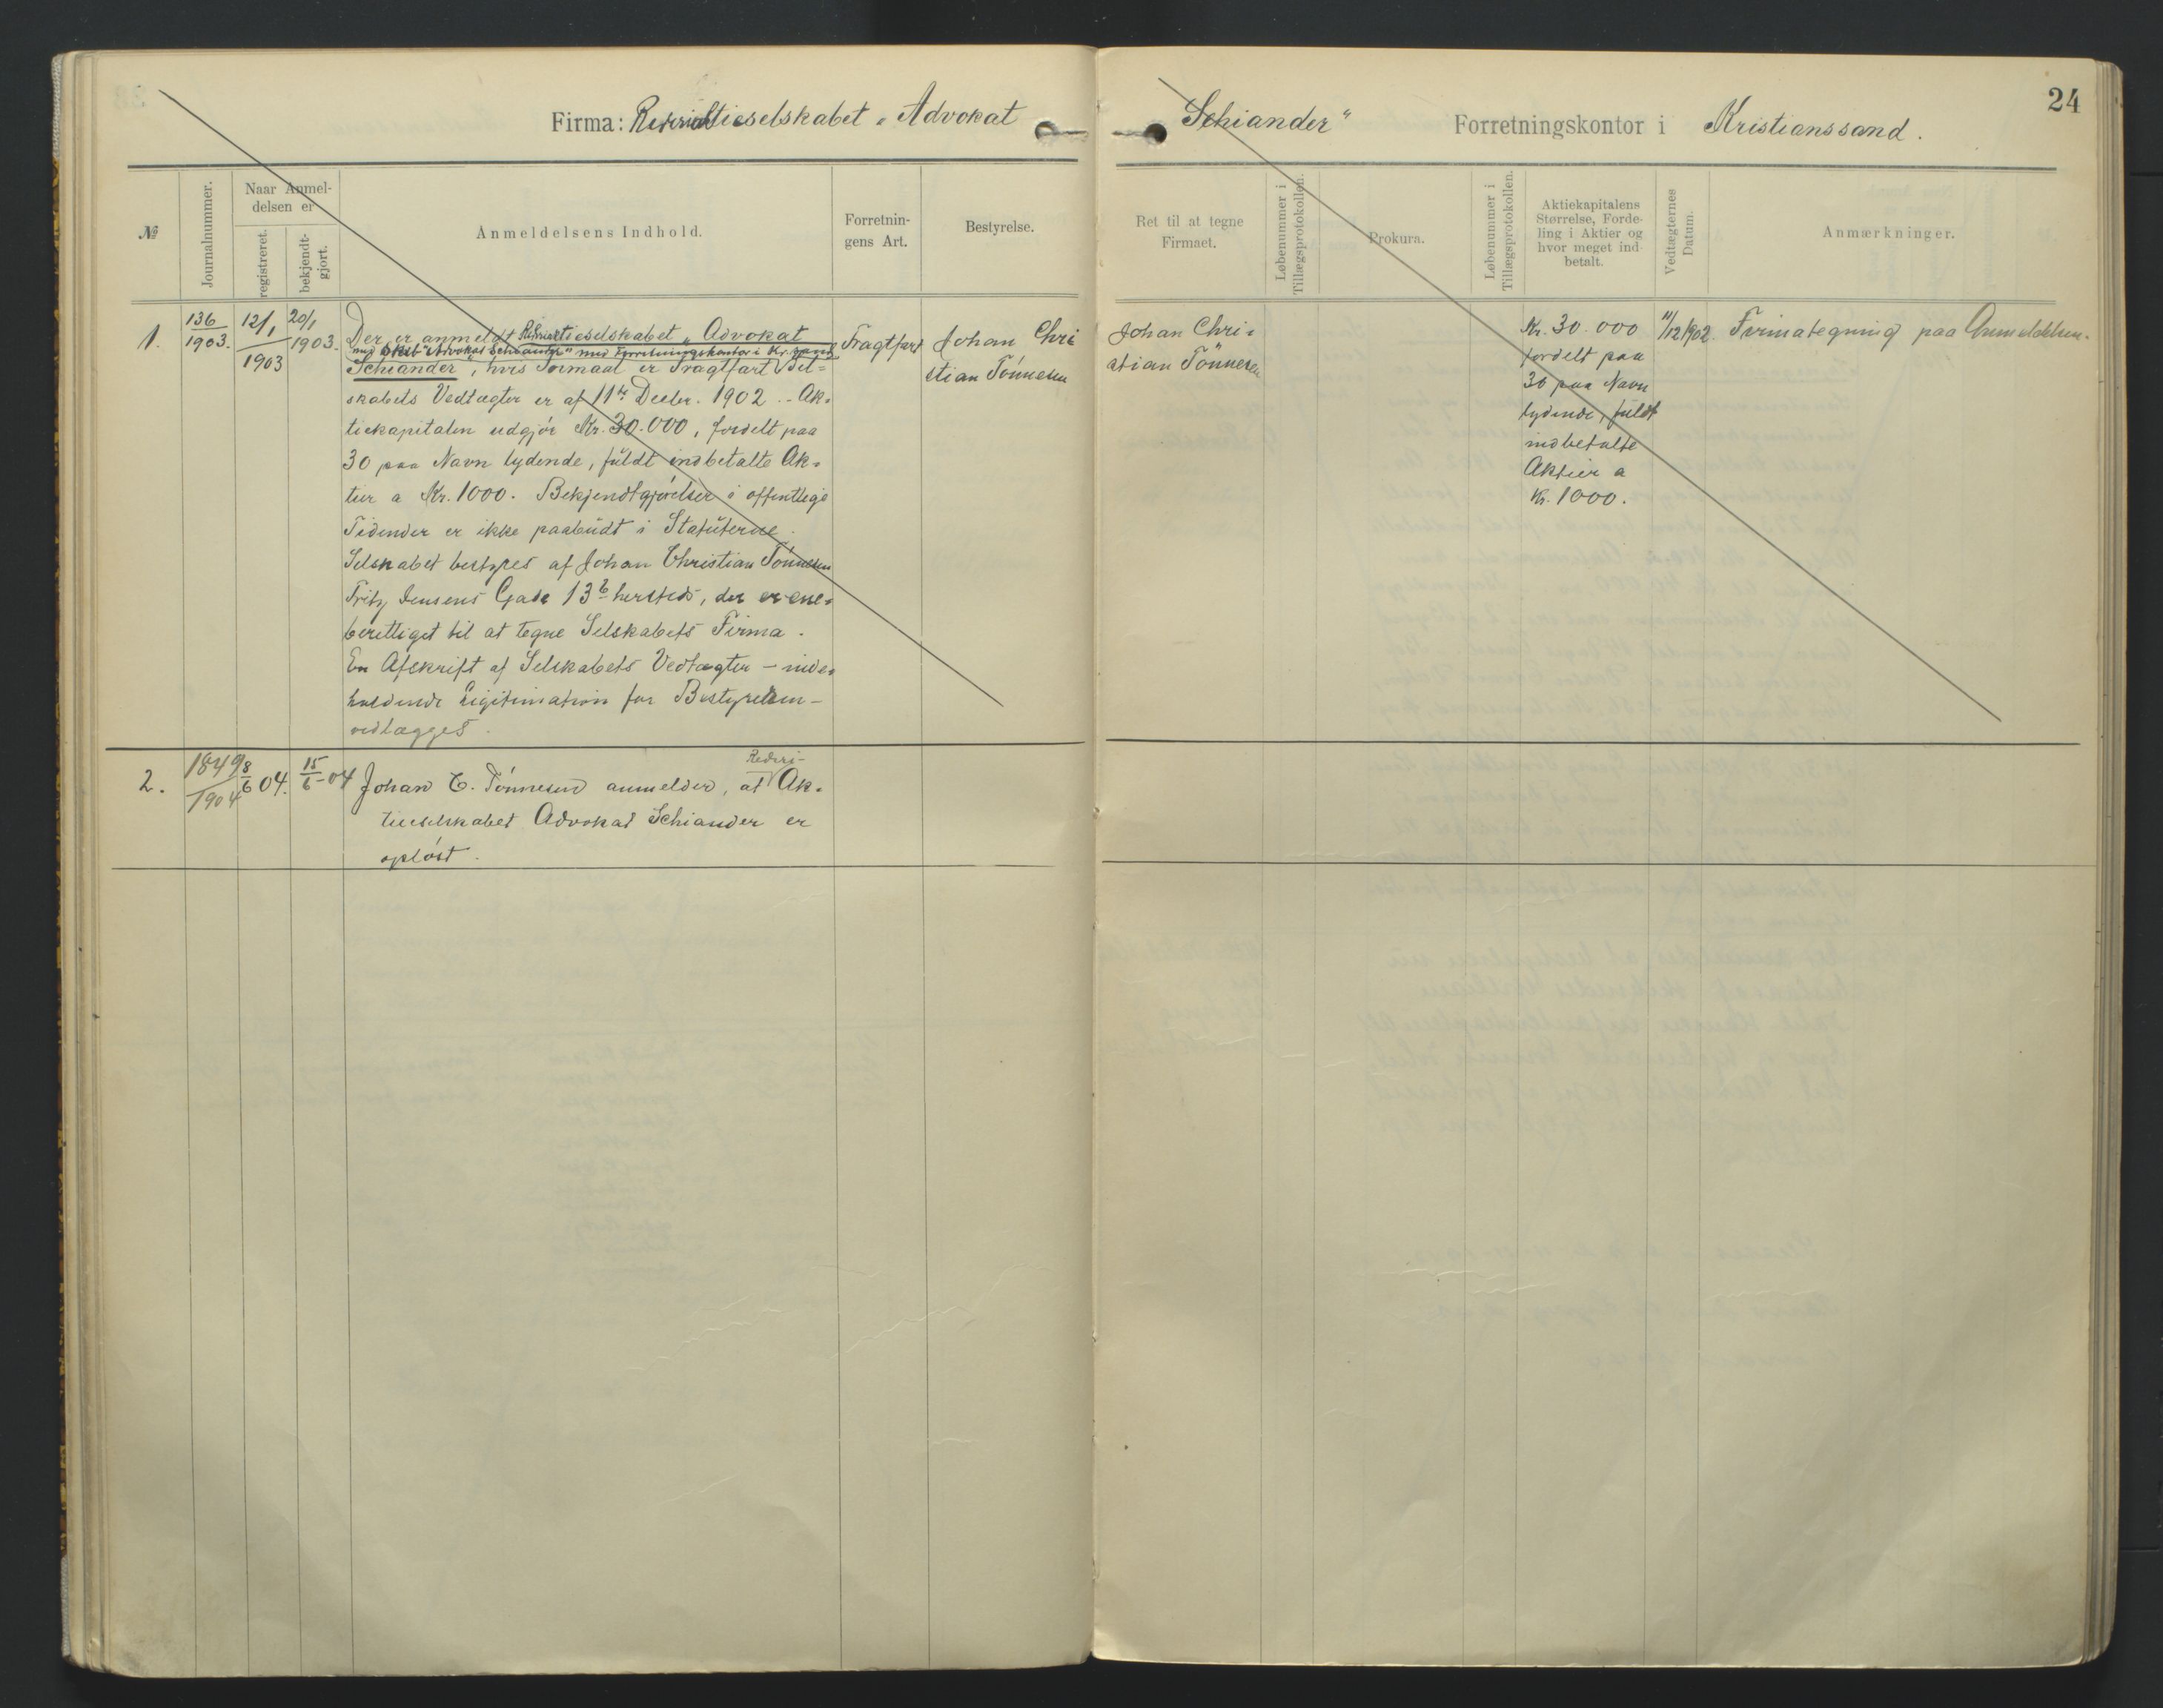 24
Firma: Rederiaktieselskabet „Advokat Schiander" Forretningskontor i Kristianssand.
№
Journalnummer.
Naar Anmel-
delsen er
registreret.
bekjendt-
gjort.
Anmeldelsens Indhold.
Forretnin-
gens Art.
Bestyrelse.
Ret til at tegne
Firmaet.
Løbenummer i
Tillægsprotokollen.
Prokura.
Løbenummer i
Tillægsprotokollen.
Aktiekapitalens
Størrelse, Forde-
ling i Aktier og
hvor meget ind-
betalt.
Vedtægternes
Datum.
Anmærkninger.
1.
136
1903.
12/1
1903
20/1
1903.
Der er anmeldt Rederiaktieselskabet „Advokat
med Skib "Advokat Schiander" med Forretningskontor i Kr.sand
Schiander", hvis Formaal er Fragtfart. Sel-
skabets Vedtægter er af 11te Decbr. 1902. - Ak-
tiekapitalen udgjør Kr. 30.000, fordelt paa
30 paa Navn lydende, fuldt indbetalte Ak-
tier a Kr. 1000. Bekjendtgjørelser i offentlige
Tidender er ikke paabudt i Statuterne.
Selskabet bestyres af Johan Christian Tönnesen
Fritz Jensens Gade 13b hersteds, der er ene-
berettiget til at tegne Selskabets Firma.
En Afskrift af Selskabets Vedtægter – inde-
holdende Legitimation for Bestyrelsen –
vedlægges.
Fragtfart
Johan Chri
stian Tönnesen
Johan Chri-
stian Tönnesen
Kr. 30.000
fordelt paa
30 paa Navn
lydende, fuldt
indbetalte
Aktier a
Kr. 1000.
11/12 1902.
Firmategning paa Anmeldelsen.
2.
1849
1904
8/6 04.
15/6 - 04
Rederi-
Johan C. Tönnesen anmelder, at Ak-
tieselskabet Advokat Schiander er
opløst.